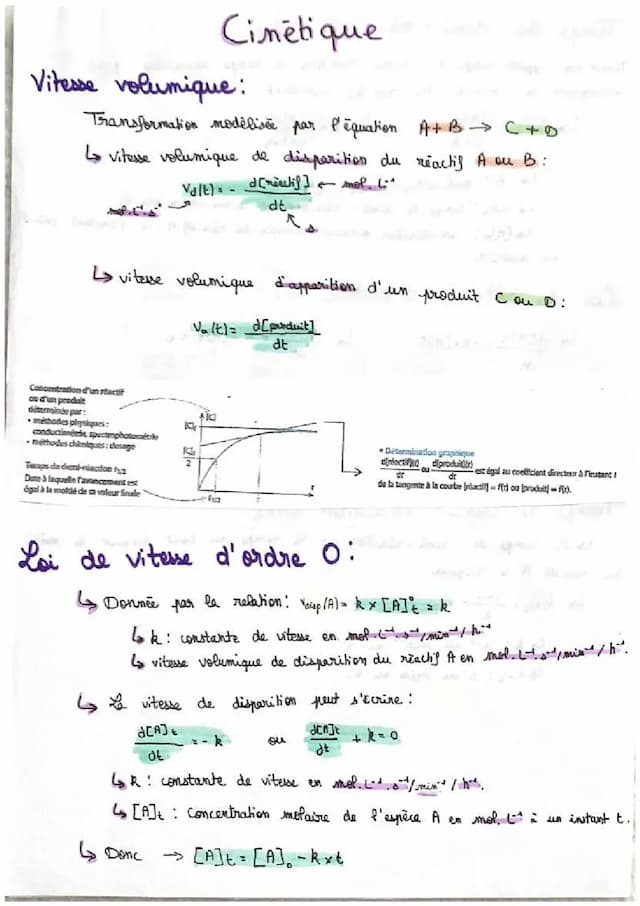 Cinétique
Vitesse volumique :
Transformation modélisée par l'équation A+B → C+D
↳ vitesse volumique de disparition du réactif A ou B :
Vd(t) = - d[réactif]/dt ← mol.L⁻¹
mol.L⁻¹.s⁻¹
s
↳ vitesse volumique d'apparition d'un produit C ou D :
Va(t) = d[produit]/dt
Concentration d'un réactif
ou d'un produit
déterminée par :
• méthodes physiques :
conductimétrie, spectrophotométrie
• méthodes chimiques : dosage
Temps de demi-réaction t1/2
Date à laquelle l'avancement est
égal à la moitié de sa valeur finale
[C]
[C]f
[C]f/2
t1/2
t
• Détermination graphique
d[réactif](t)/dt ou d[produit](t)/dt est égal au coefficient directeur à l'instant t
de la tangente à la courbe [réactif] = f(t) ou [produit] = f(t).
Loi de vitesse d'ordre 0 :
↳ Donnée par la relation : Vdisp(A) = k × [A]⁰t = k
↳ k : constante de vitesse en mol.L⁻¹.s⁻¹/min⁻¹/h⁻¹
↳ vitesse volumique de disparition du réactif A en mol.L⁻¹.s⁻¹/min⁻¹/h⁻¹.
↳ La vitesse de disparition peut s'écrire :
d[A]t/dt = - k ou d[A]t/dt + k = 0
↳ k : constante de vitesse en mol.L⁻¹.s⁻¹/min⁻¹/h⁻¹.
↳ [A]t : Concentration molaire de l'espèce A en mol.L⁻¹ à un instant t.
↳ Donc → [A]t = [A]₀ - k×t